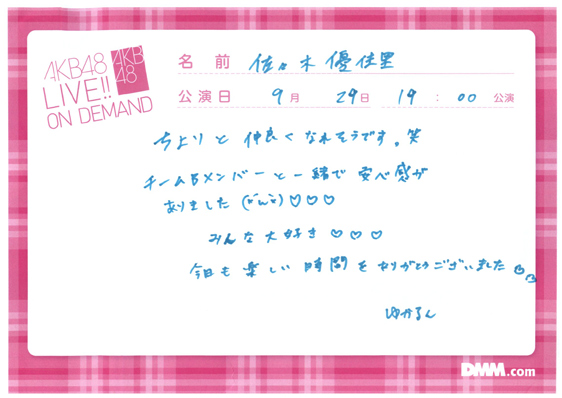 AKB48
LIVE!!
ON DEMAND
AKB
48
名前 佐々木優佳里
公演日 9月29日 19:00公演
ちよりと仲良くなれそうです。笑
チームBメンバーと一緒で安心感が
ありました(*´ω`*)♡♡♡
みんな大好き♡♡♡
今日も楽しい時間をありがとうございました
ゆかるん
DMM.com